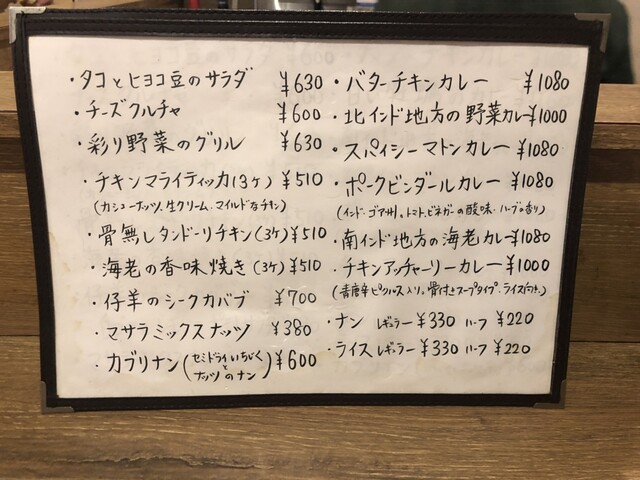 ・タコとヒヨコ豆のサラダ ¥630
・チーズクルチャ ¥600
・彩り野菜のグリル ¥630
・チキンマライティッカ(3ケ) ¥510
(カシューナッツ、生クリーム、マイルドなチキン)
・骨無しタンドーリチキン(3ケ) ¥510
・海老の香味焼き(3ケ) ¥510
・仔羊のシークカバブ ¥700
・マサラミックスナッツ ¥380
・カブリナン(セミドライいちじくとナッツのナン) ¥600
・バターチキンカレー ¥1080
・北インド地方の野菜カレー ¥1000
・スパイシーマトンカレー ¥1080
・ポークビンダールカレー ¥1080
(インド・ゴア州。トマト、ビネガーの酸味・ハーブの香り)
・南インド地方の海老カレー ¥1080
・チキンアッチャーリーカレー ¥1000
(青唐辛ピクルス入り。骨付きスープタイプ・ライス向き。)
・ナン レギュラー ¥330 ハーフ ¥220
・ライス レギュラー ¥330 ハーフ ¥220